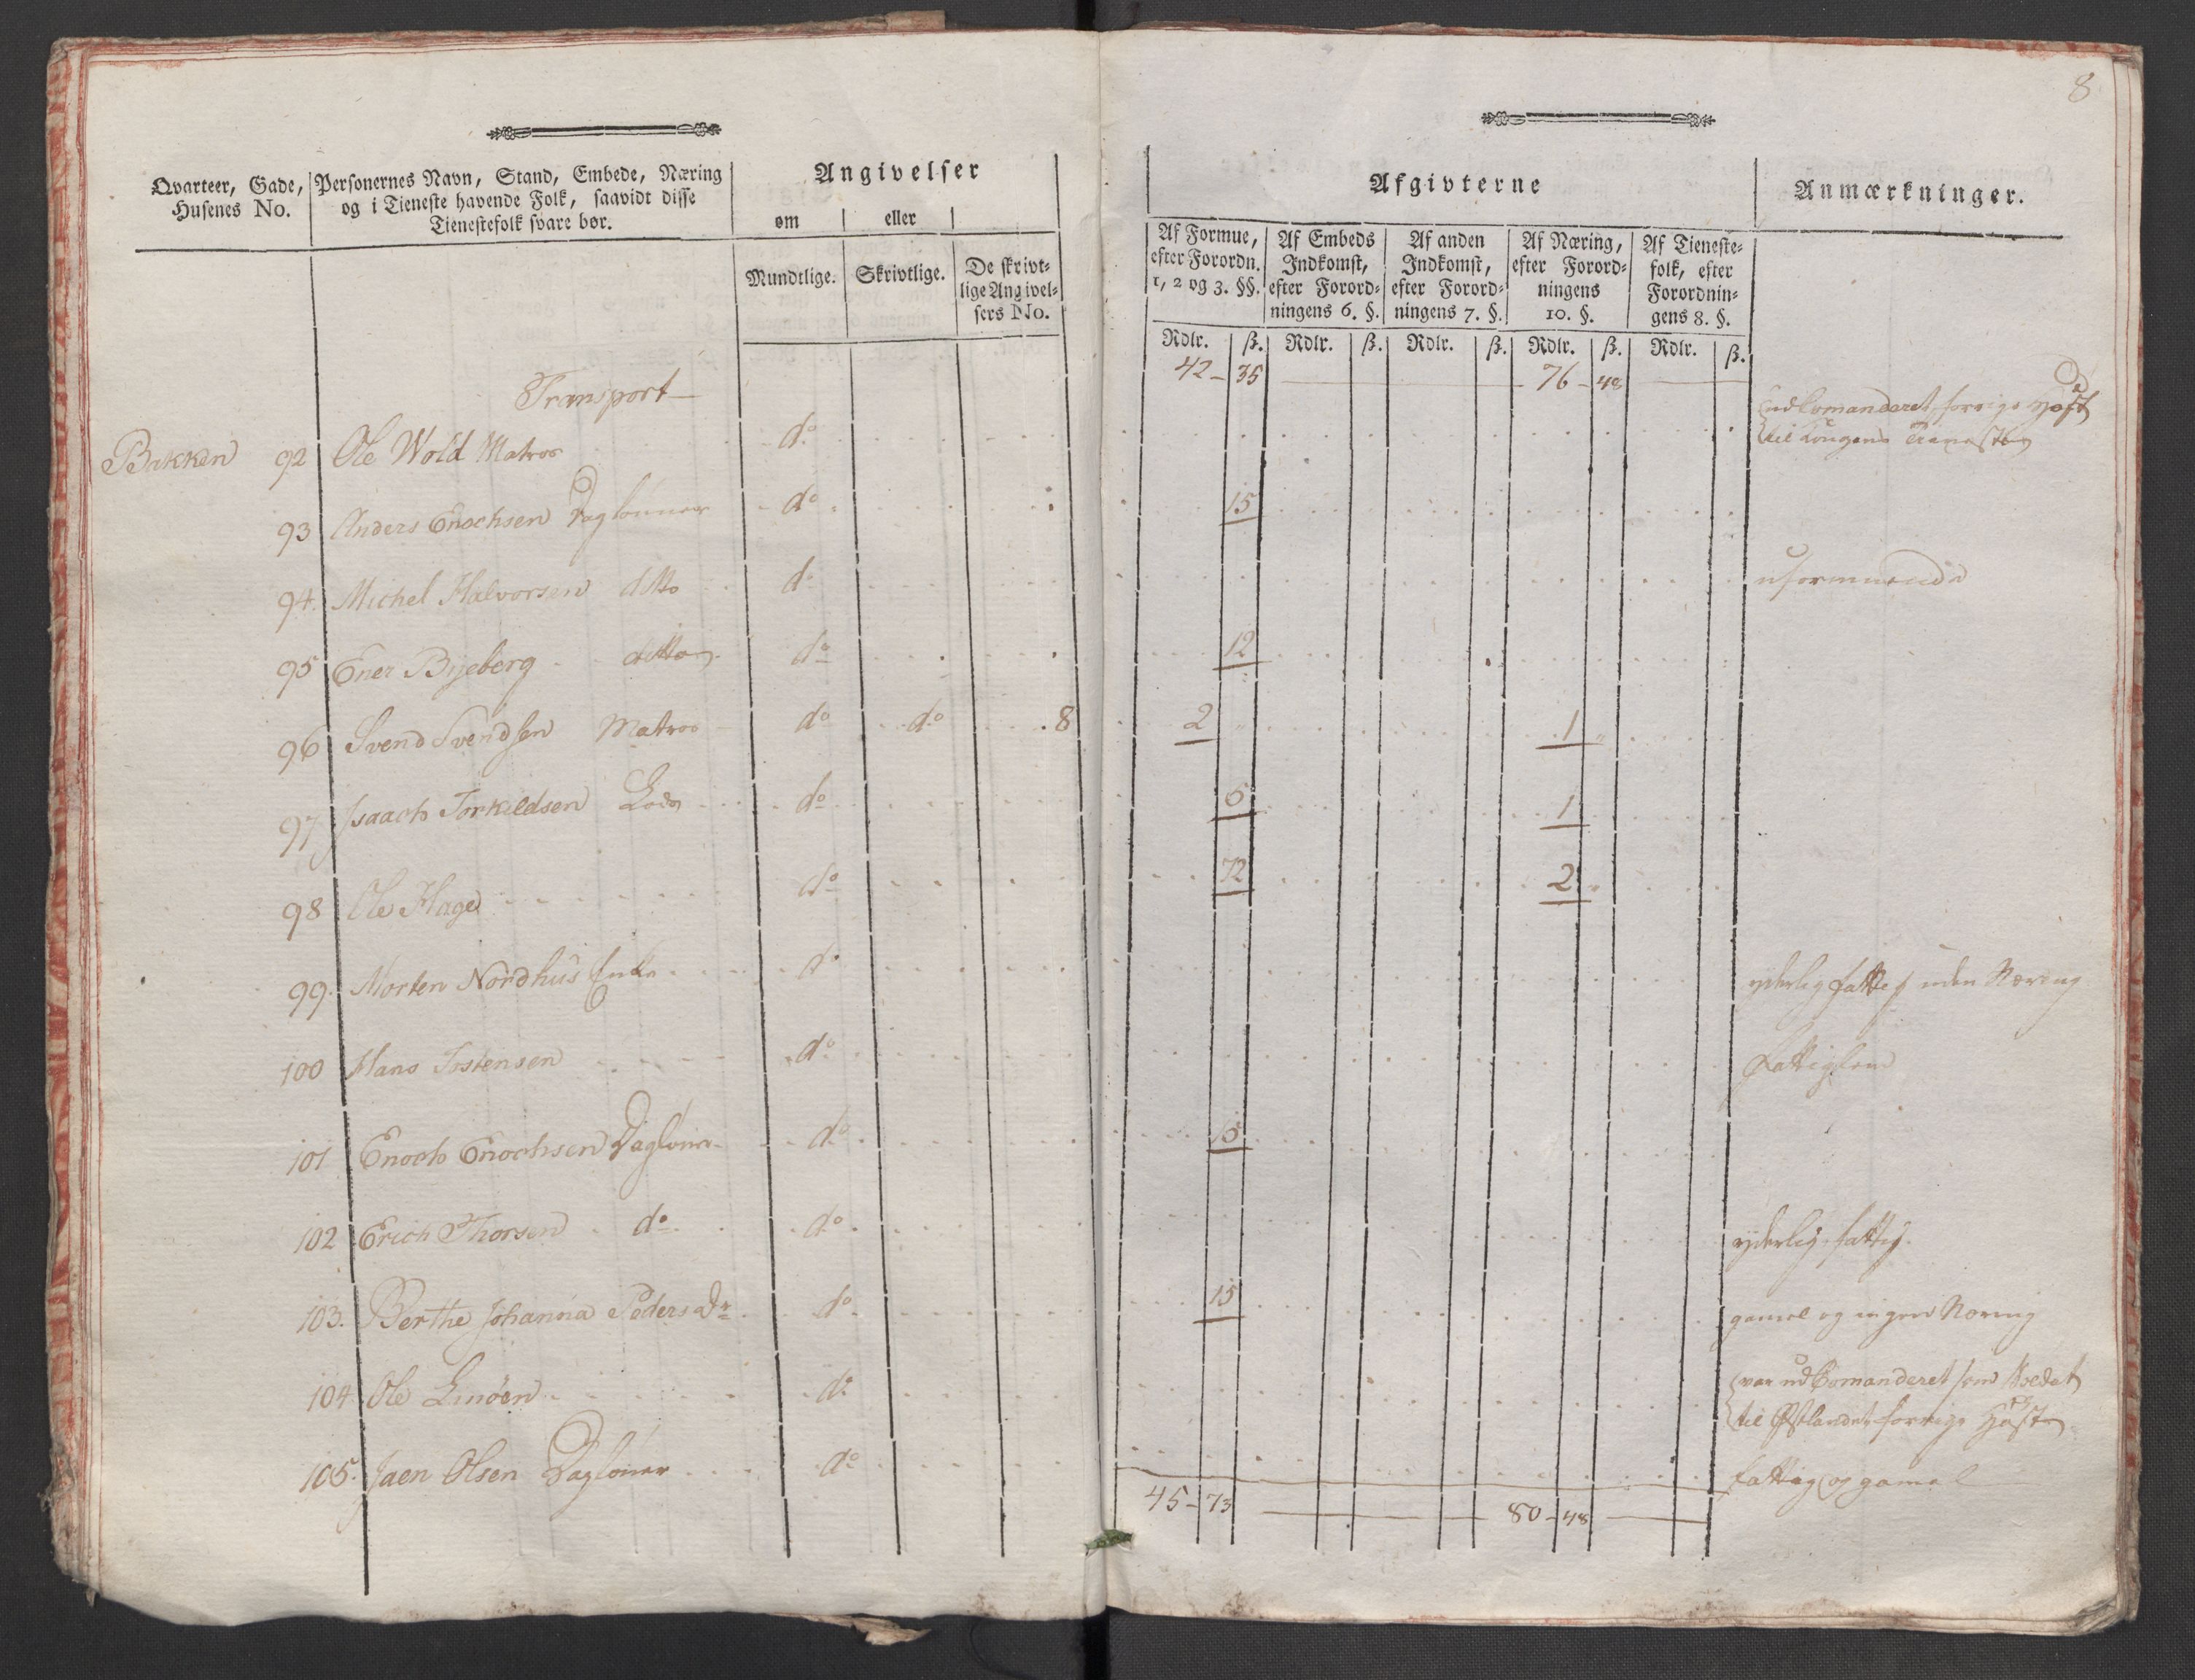 8
Qvarteer, Gade, Husenes No.
Personernes Navn, Stand, Embede, Næring
og i Tieneste havende Folk, saavidt disse
Tienestefolk svare bør.
Angivelser
om eller
Mundtlige. Skrivtlige. De skrivt-
lige Angivel-
sers No.
Afgivterne
Anmærkninger.
Af Formue,
efter Forordn.
1, 2 og 3. §§.
Af Embeds
Indkomst,
efter Forord-
ningens 6. §.
Af anden
Indkomst,
efter Forord-
ningens 7. §.
Af Næring,
efter Forord-
ningens
10. §.
Af Tieneste-
folk, efter
Forordnin-
gens 8. §.
Rdlr. ß. Rdlr. ß. Rdlr. ß. Rdlr. ß. Rdlr. ß.
Transport 42 - 35 76 - 48
Bakken 92 Ole Wold Matros do udkomanderet forrige Høst
til Kongens Tieneste
93 Anders Enochsen Daglønner do 15
94. Michel Halvorsen ditto do uformuende
95 Ener Bijeberg ditto do 12
96 Svend Svendsen Matros do do 8 2 1
97 Isaach Torkildsen Lods do 1
98 Ole Hage do 72 2
99. Morten Nordhus Enke do yderlig fattig uden Næring
100 Hans Istensen do Fattiglem
101 Enoch Enochsen Dagløner do 15
102 Erich Thorsen do do yderlig fattig.
103. Berthe Johanna Peders Dr do 15 gamel og ingen Næring
104 Ole Linøen do var udkomanderet som Soldat
til Østlandet forrige Høst
105. Jaen Olsen Dagløner do fattig og gamel
45 - 73 80 - 48